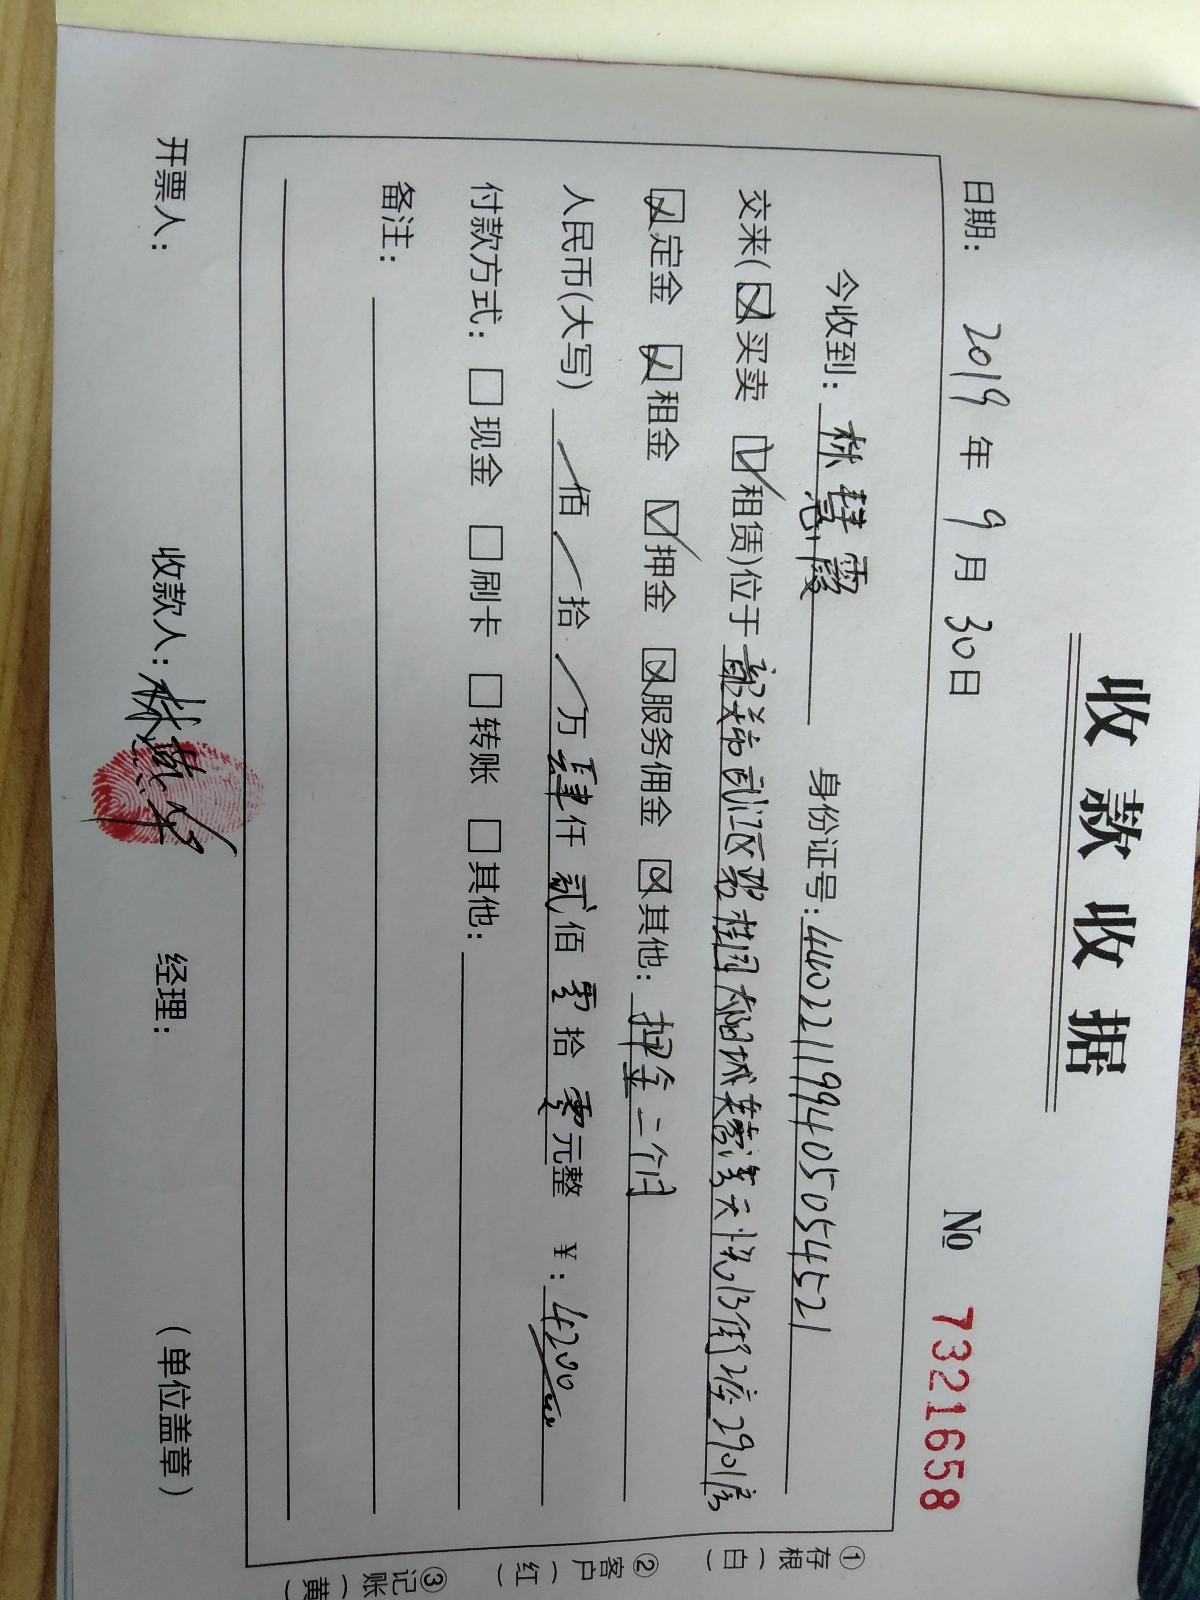 收款收据
№ 7321658
日期: 2019 年 9 月 30日
今收到: 林慧霞 身份证号: 440221199405054521
交来(☒买卖 ☑租赁)位于韶关市武江区碧桂园太阳城 天悦13街2座2901房
☒定金 ☒租金 ☑押金 ☒服务佣金 ☒其他: 押金二个月
人民币(大写) / 佰 / 拾 / 万 肆 仟 贰 佰 零 拾 零 元整 ¥: 4200
付款方式: □现金 □刷卡 □转账 □其他:
备注:
开票人: 收款人: 林燕 经理: (单位盖章)
①存根(白)
②客户(红)
③记账(黄